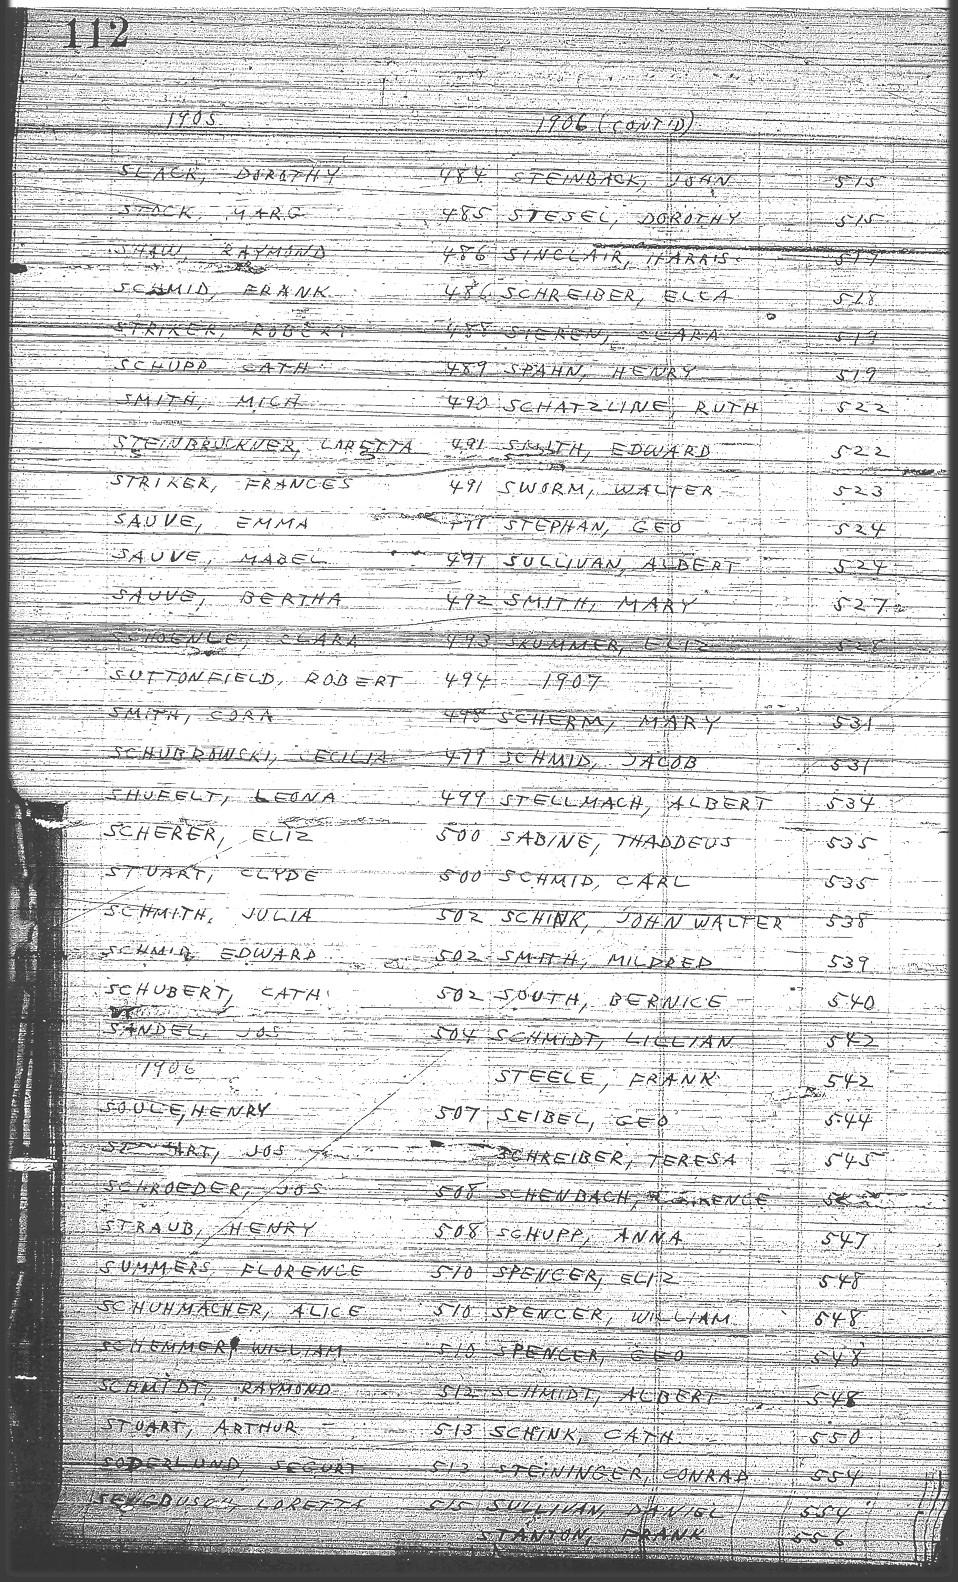 112
1905
SLACK, DOROTHY 484
STOCK, MARG 485
SHAW, RAYMOND 486
SCHMID, FRANK 486
STRIKER, ROBERT 488
SCHUPP CATH 489
SMITH, MICH 490
STEINBRUCKNER, LORETTA 491
STRIKER, FRANCES 491
SAUVE, EMMA
SAUVE, MABEL 491
SAUVE, BERTHA 492
SCHOENLE, CLARA 493
SUTTONFIELD, ROBERT 494
SMITH, CORA 498
SCHUBROWSKI, CECILIA 499
SHUFELT, LEONA 499
SCHERER, ELIZ 500
STUART, CLYDE 500
SCHMITH, JULIA 502
SCHMID, EDWARD 502
SCHUBERT, CATH 502
SANDEL, JOS 504
1906
SOULE, HENRY 507
JOS
SCHROEDER, JOS 508
STRAUB, HENRY 508
SUMMERS, FLORENCE 510
SCHUHMACHER, ALICE 510
SCHEMMER, WILLIAM 510
SCHMIDT, RAYMOND 512
STUART, ARTHUR 513
SODERLUND, SEGURT 513
LORETTA 515
1906 (CONT'D)
STEINBACK, JOHN 515
STESEL, DOROTHY 515
SINCLAIR, HARRIS 517
SCHREIBER, ELLA 518
SIEREN, CLARA 519
SPAHN, HENRY 519
SCHATZLINE, RUTH 522
SMITH, EDWARD 522
SWORM, WALTER 523
STEPHAN, GEO 524
SULLIVAN, ALBERT 524
SMITH, MARY 527
SKUMMER, ELIZ 528
1907
SCHERM, MARY 531
SCHMID, JACOB 531
STELLMACH, ALBERT 534
SABINE, THADDEUS 535
SCHMID, CARL 535
SCHINK, JOHN WALTER 538
SMITH, MILDRED 539
SOUTH, BERNICE 540
SCHMIDT, LILLIAN 542
STEELE, FRANK 542
SEIBEL, GEO 544
SCHREIBER, TERESA 545
SCHENBACH,
SCHUPP, ANNA 547
SPENCER, ELIZ 548
SPENCER, WILLIAM 548
SPENCER, GEO 548
SCHMIDT, ALBERT 548
SCHINK, CATH 550
STEININGER, CONRAD 554
SULLIVAN, DANIEL 554
STANTON, FRANK 556